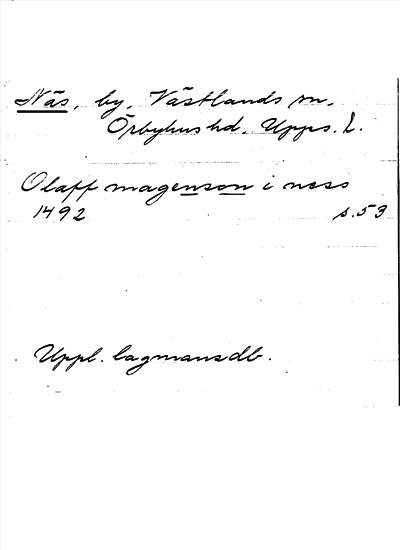 Näs, by, Västlands sn.
Örbyhus hd. Upps. l.
Olaff magenson i ness
1492 s. 53
Uppl. lagmansdb.